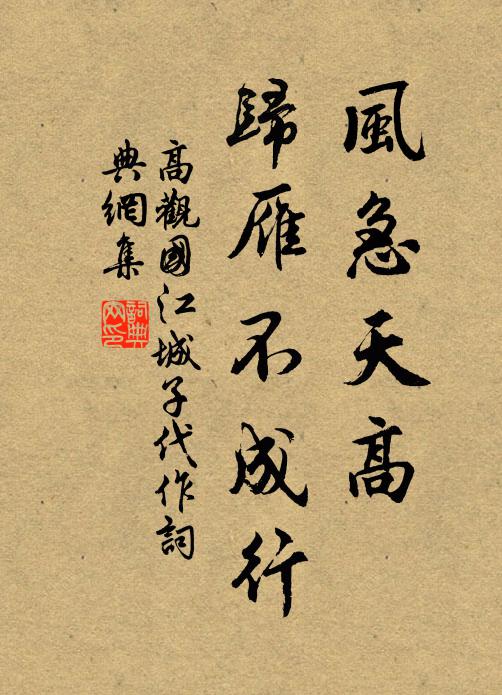 風急天高
歸雁不成行
高觀國江城子代作詞
典網集
詞典
网印